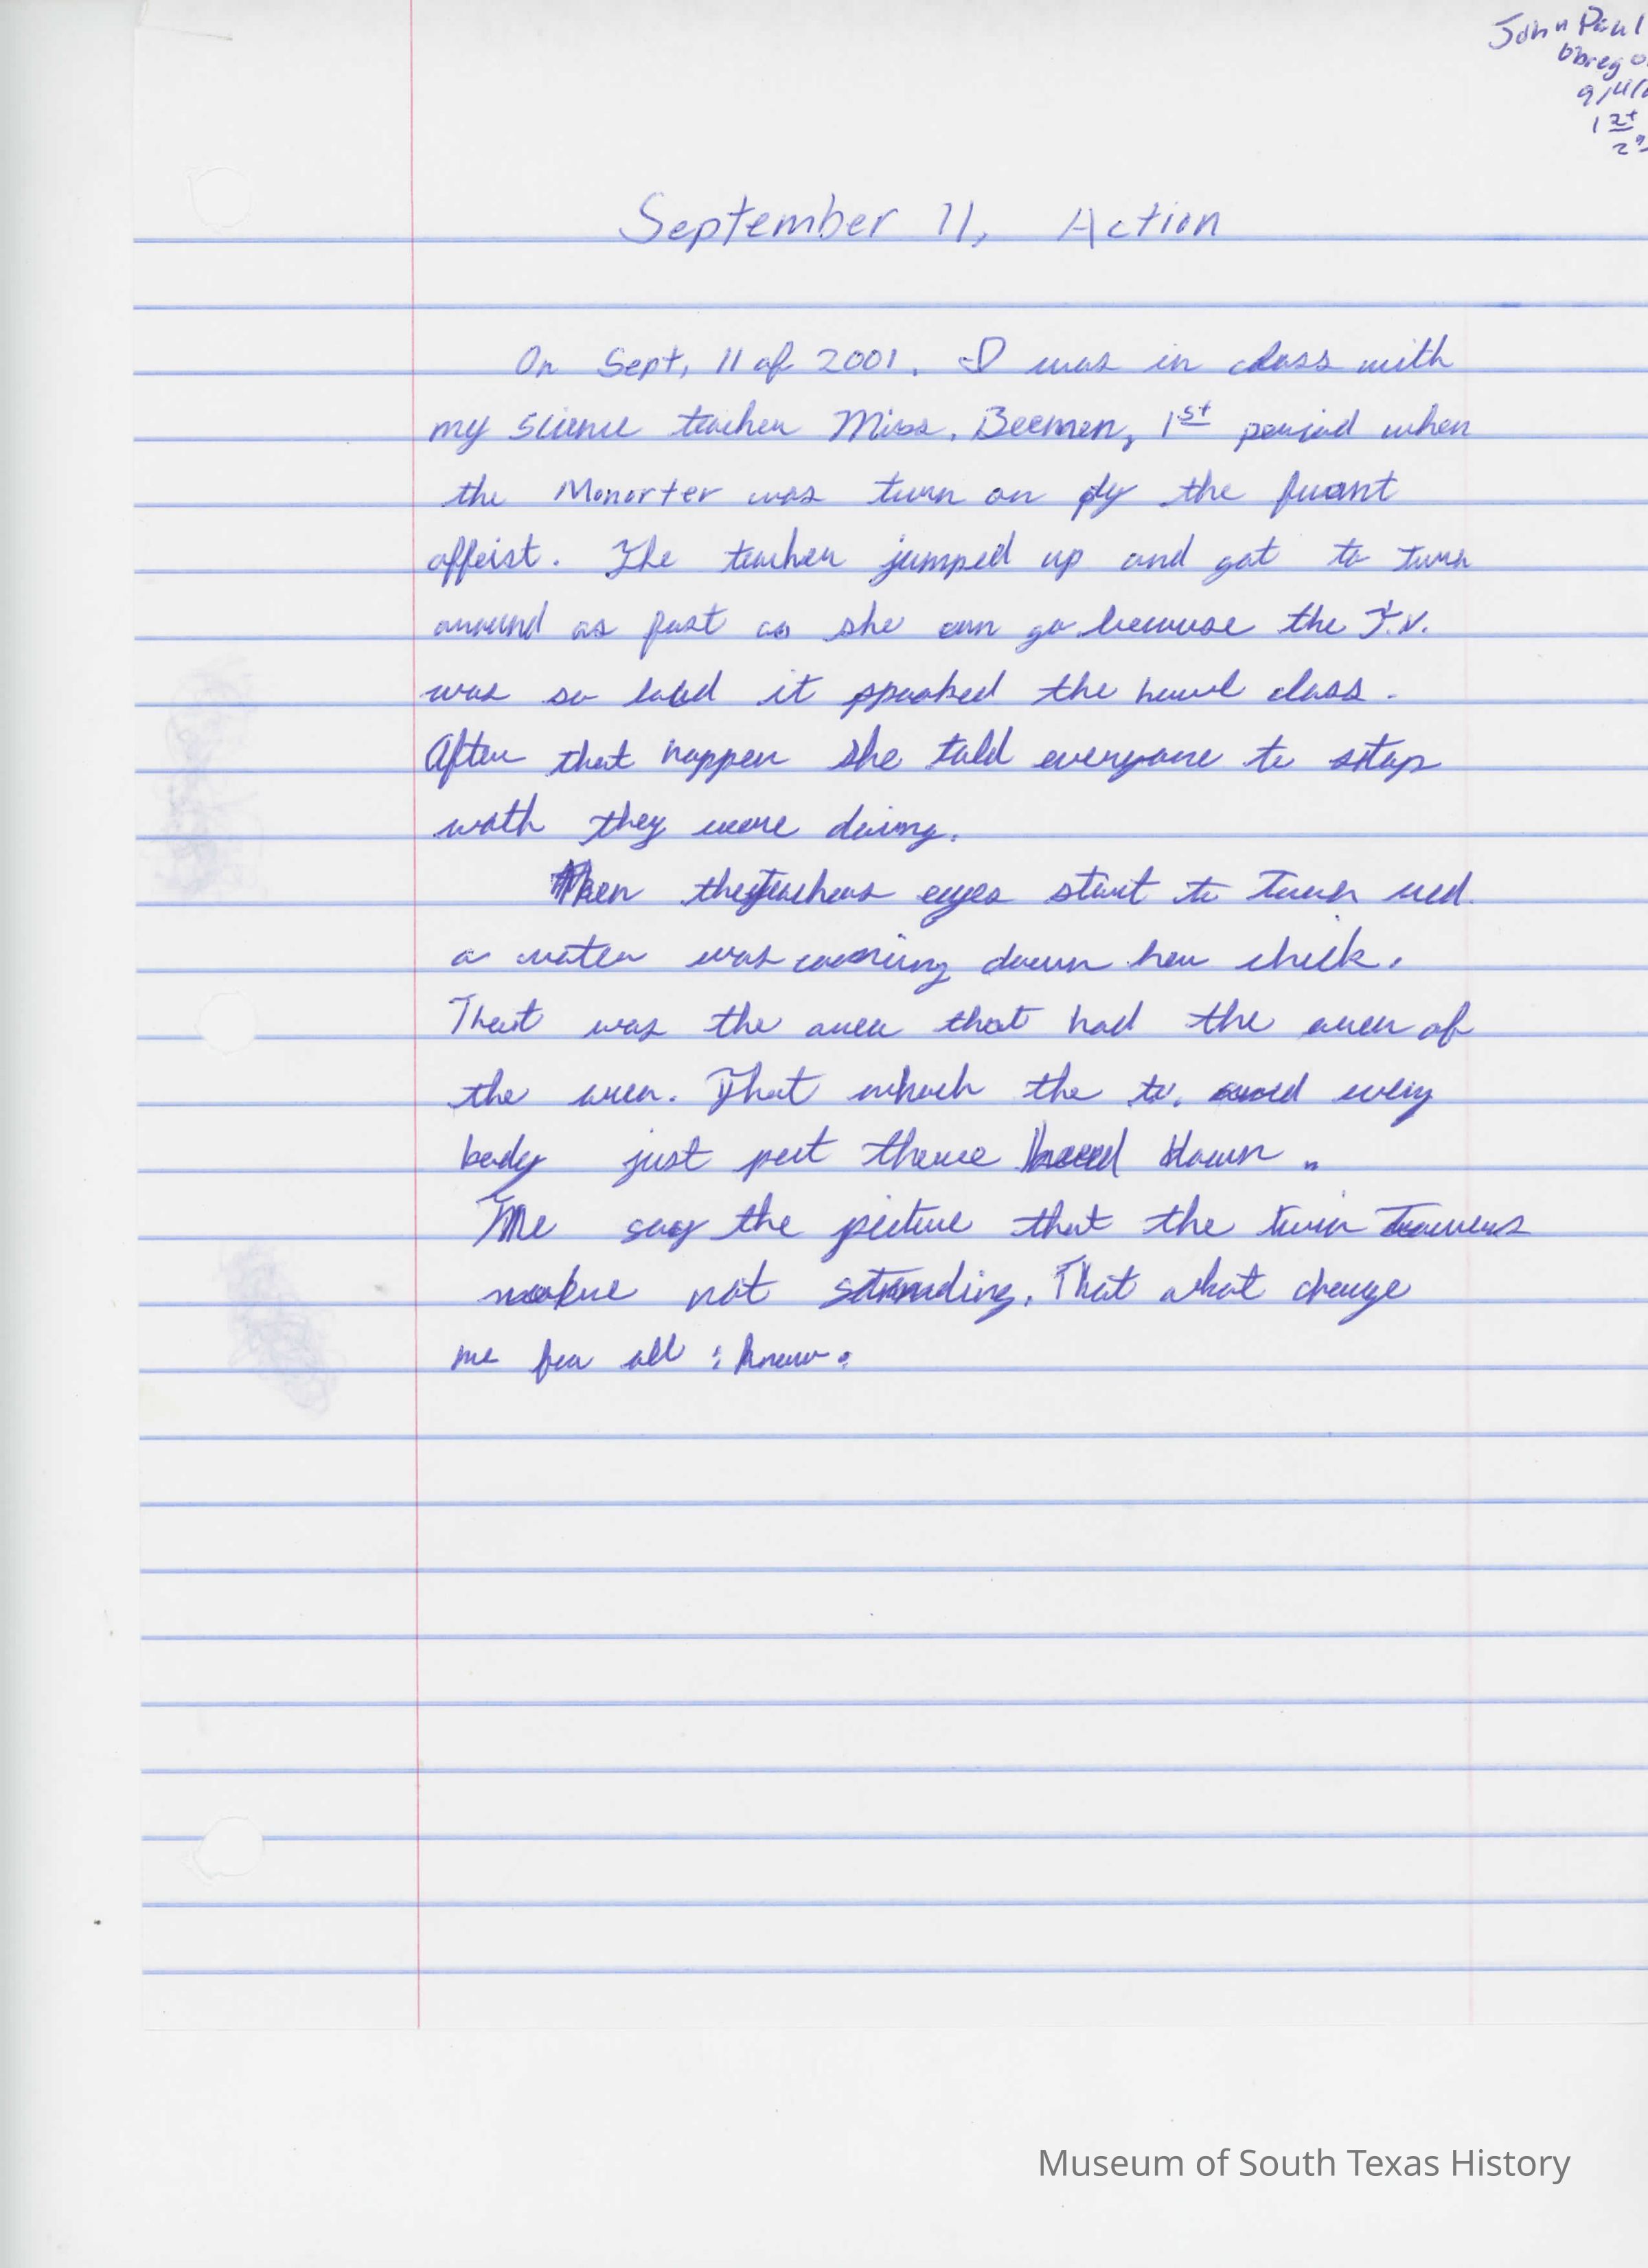 John Paul
Obrego
9/11/
1st
2n
September 11, Action
On Sept, 11 of 2001. I was in class with
my science teacher Miss. Beemen, 1st period when
the Monorter was turn on by the fruant
offeist. The teacher jumped up and got to turn
around as fast as she can go because the T.V.
was so loud it spooked the howl class.
After that happen she told everyone to stop
wath they were doing.
Then the teachers eyes start to turn red
a water was running down her chick.
That was the area that had the area of
the area. That the tv. and every
body just put there head down.
We say the picture that the twin Towers
not standing. That what change
me for all i know.
Museum of South Texas History